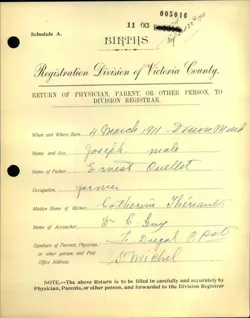 005016
11 03
Schedule A.
BIRTHS
Registration Division of Victoria County.
RETURN OF PHYSICIAN, PARENT, OR OTHER PERSON, TO
DIVISION REGISTRAR.
When and Where Born, 4 March 1911
Name and Sex, Joseph male
Name of Father, Ernest Ouellet
Occupation, farmer
Maiden Name of Mother, Catherine Thériault
Name of Accoucher, Dr E. Guy
Signature of Parents, Physician, or other person, and Post Office Address
St Michel
NOTE.—The above Return is to be filled in carefully and accurately by
Physician, Parents, or other person, and forwarded to the Division Registrar